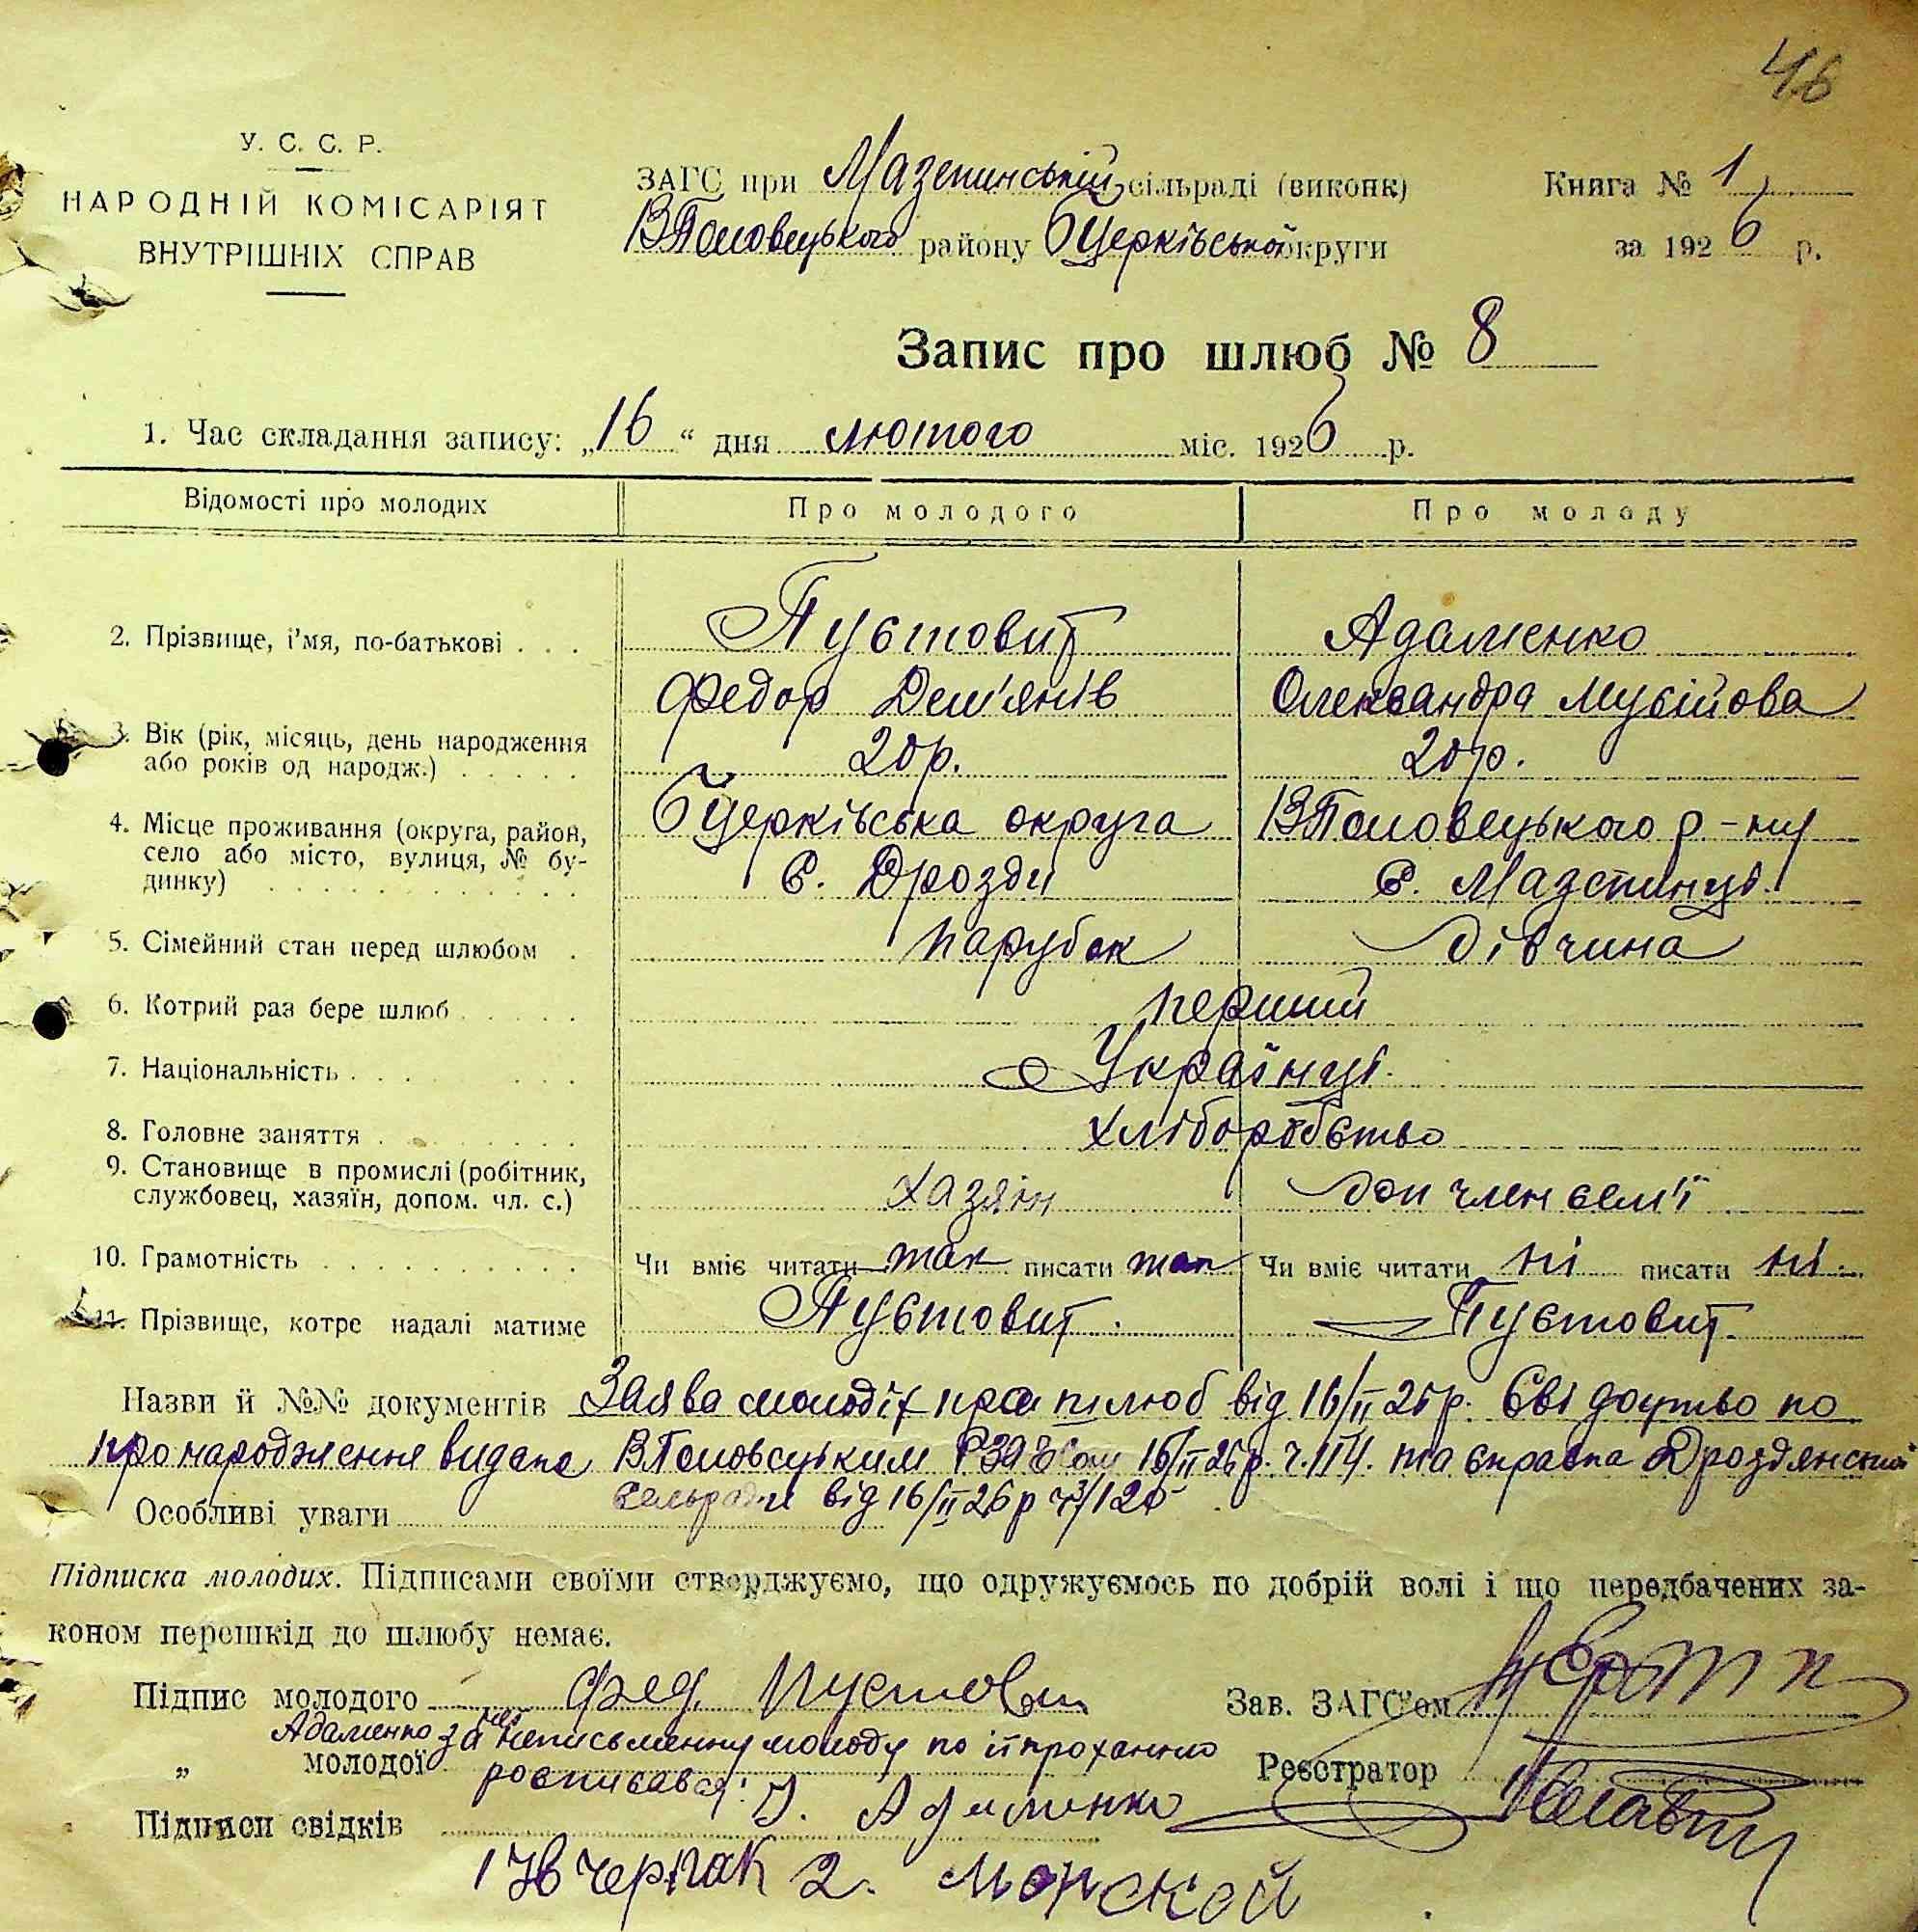 46
У. С. С. Р.
НАРОДНІЙ КОМІСАРІЯТ
ВНУТРІШНІХ СПРАВ
ЗАГС при Мазепинській сільраді (виконк)
ВПоловецького району БЦерківської округи
Книга № 1
за 1926 р.
Запис про шлюб № 8
1. Час складання запису: „16“ дня лютого міс. 1926 р.
Відомості про молодих Про молодого Про молоду
2. Прізвище, і’мя, по-батькові . . . Пустовит Адаменко
Федор Дем'янів Олександра Мусійова
3. Вік (рік, місяць, день народження
або років од народж.) . . . . . 20р. 20р.
4. Місце проживання (округа, район,
село або місто, вулиця, № бу-
динку) БЦерківська округа ВПоловецького р-ну
с. Дрозди с. Мазепинці.
5. Сімейний стан перед шлюбом . парубок дівчина
6. Котрий раз бере шлюб . . . . . перший
7. Національність . . . Українці.
8. Головне заняття . хліборобство
9. Становище в промислі (робітник,
службовец, хазяїн, допом. чл. с.) хазяін доп член сем'ї
10. Грамотність Чи вміє читати так писати так Чи вміє читати ні писати ні.
11. Прізвище, котре надалі матиме Пустовит. Пустовит.
Назви й №№ документів Заява молодіх про шлюб від 16/II 26р. Свідоцтво по
про народження видане ВПоловецьким 16/II 26р. ч. 114. та справка Дроздянської
сельради від 16/II 26р
Особливі уваги
Підписка молодих. Підписами своїми стверджуємо, що одружуємось по добрій волі і що передбачених за-
коном перешкід до шлюбу немає.
Підпис молодого Фед. Пустовит
Зав. ЗАГС’ом
„ молодої Адаменко за неписьменну молоду по її проханню
росписався: І. Адаменко
Реєстратор
Підписи свідків
1 Черпак 2. Морской